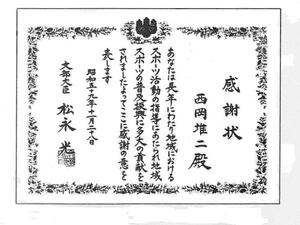 感謝状
西岡堆二殿
あなたは長年にわたり地域における
スポーツ活動の指導にあたられ地域
スポーツの普及振興に多大の貢献を
されましたよってここに感謝の意を
表します
昭和五十九年十月二十八日
文部大臣 松永光